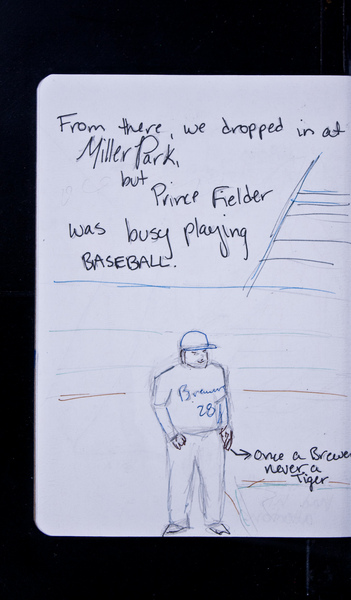 From there, we dropped in at
Miller Park,
but
Prince Fielder
was busy playing
BASEBALL.
Brewers
28
Once a Brewe
never a
Tiger